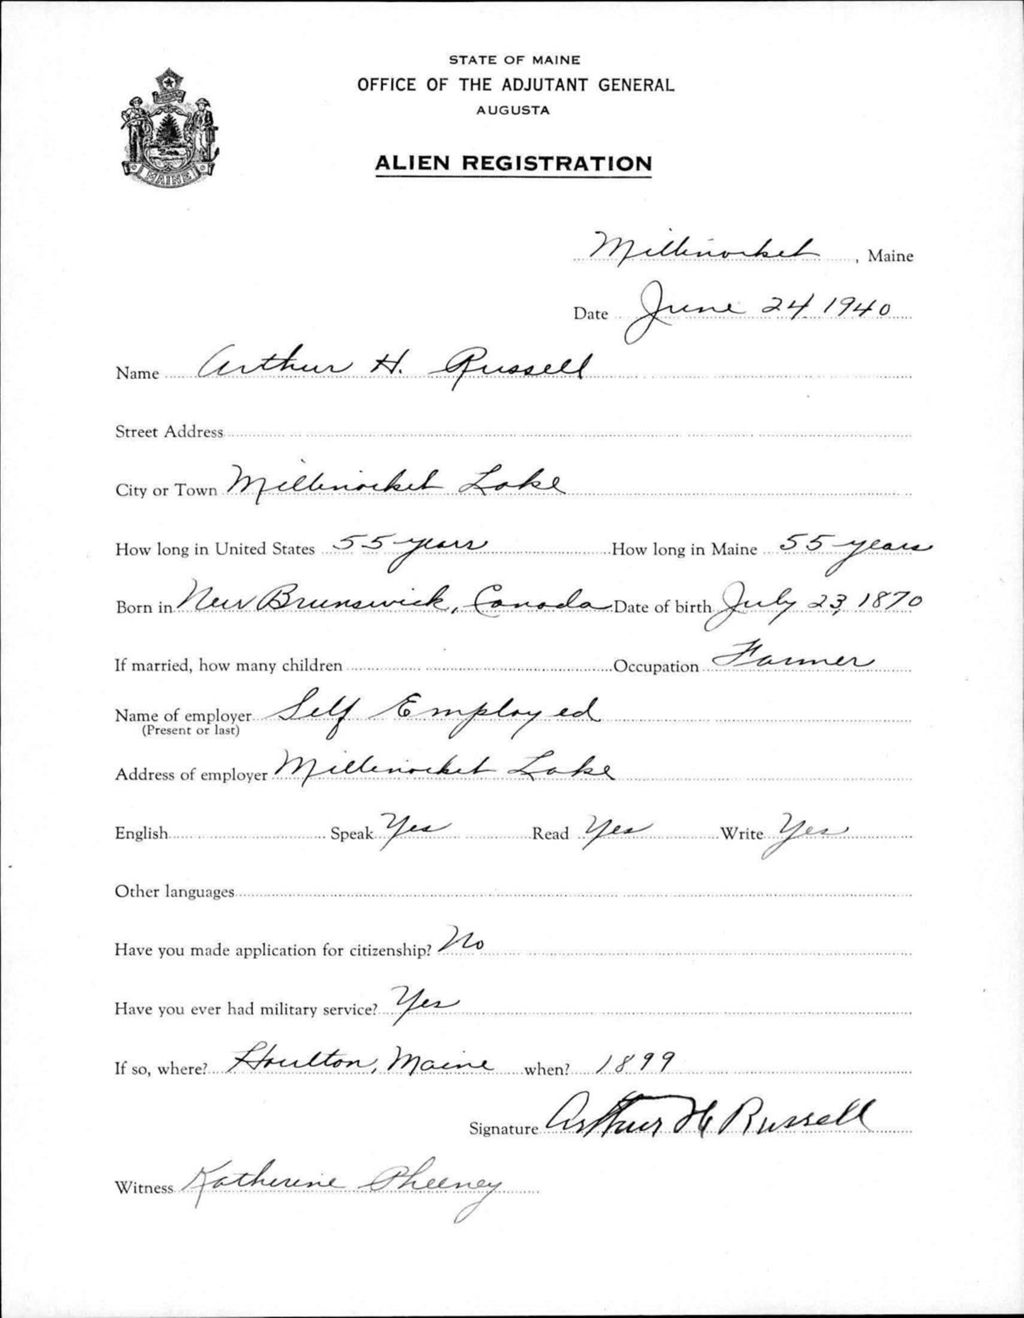 STATE OF MAINE
OFFICE OF THE ADJUTANT GENERAL
AUGUSTA
ALIEN REGISTRATION
MAINE
Millinocket, Maine
Date June 24, 1940
Name Arthur H. Russell
Street Address
City or Town Millinocket Lake
How long in United States 55 years How long in Maine 55 years
Born in New Brunswick, Canada Date of birth July 23, 1870
If married, how many children Occupation Farmer
Name of employer Self Employed
(Present or last)
Address of employer Millinocket Lake
English Speak Yes Read Yes Write Yes
Other languages
Have you made application for citizenship? No
Have you ever had military service? Yes
If so, where? Houlton, Maine when? 1899
Signature Arthur H Russell
Witness Katherine Pheeney